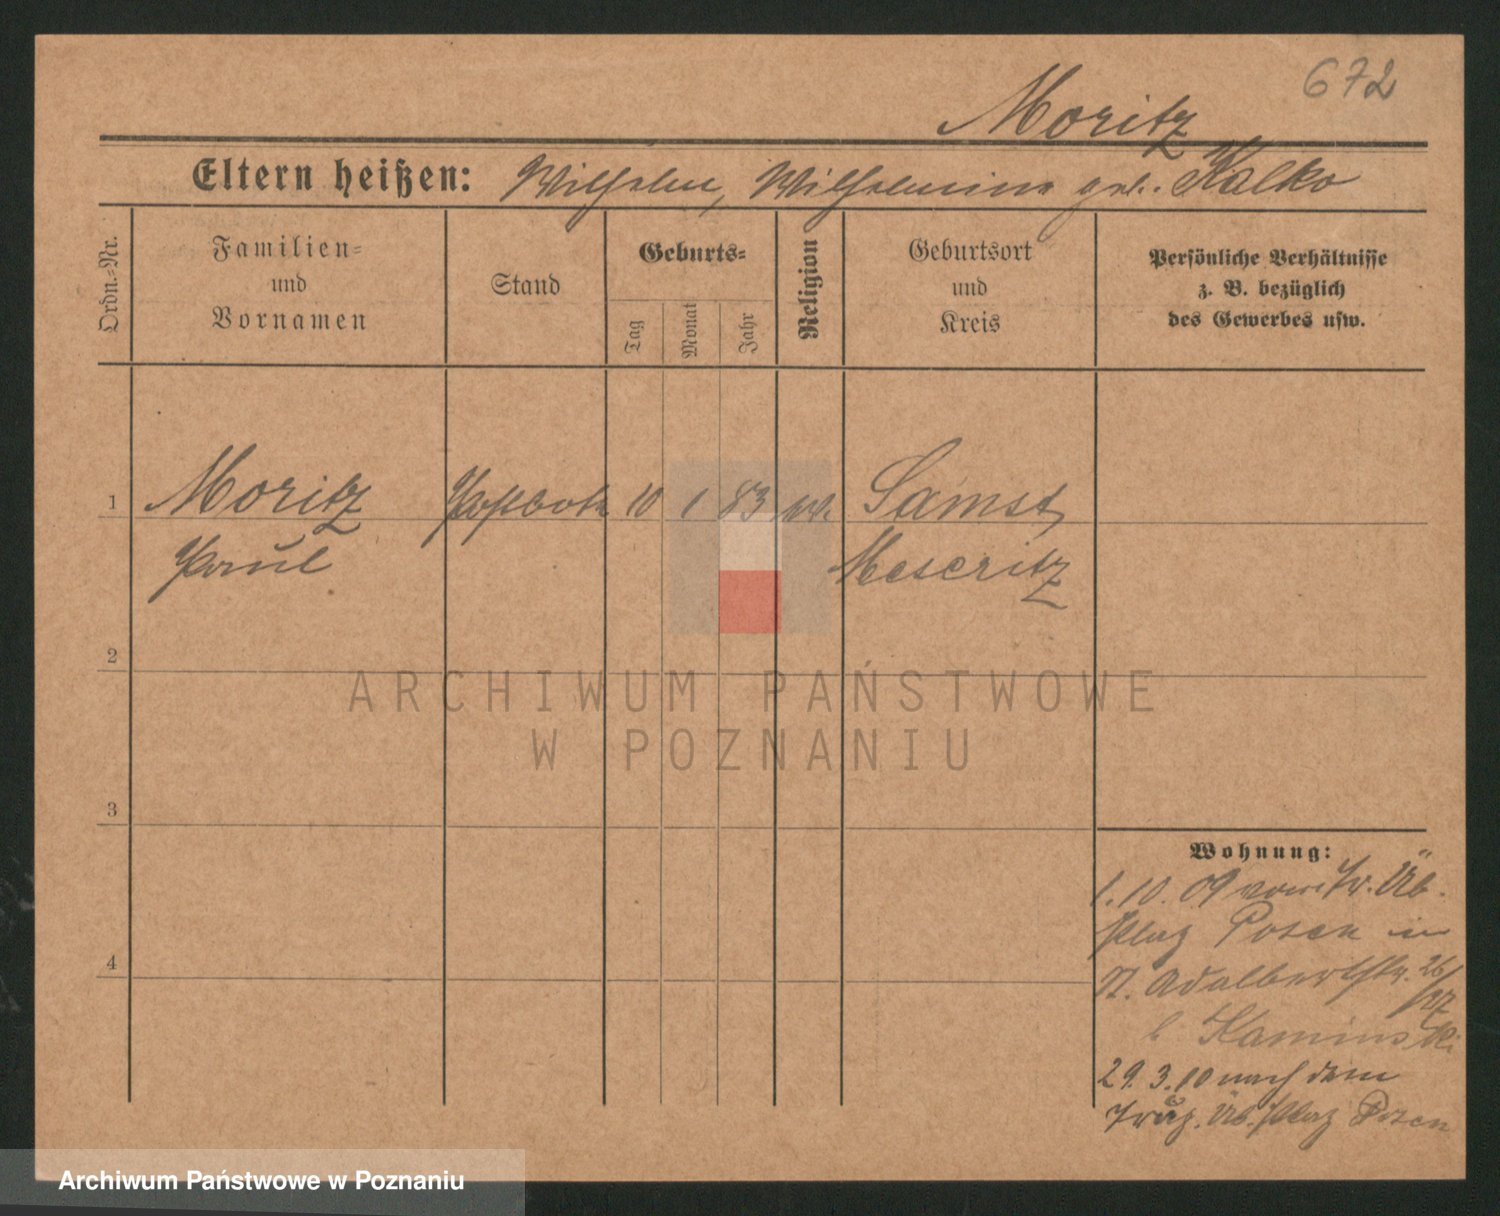 672
Moritz
Eltern heißen: Wilhelm, Wilhelmine geb. Kalko
Ordn.-Nr.
Familien-
und
Vornamen
Stand
Geburts-
Tag
Monat
Jahr
Religion
Geburtsort
und
Kreis
Persönliche Verhältnisse
z. B. bezüglich
des Gewerbes usw.
1 Moritz Postbote 10 1 83 Samst,
Paul Meseritz
2
3
4
Wohnung:
1.10.09 vom Tr. Üb.
Platz Posen in
St. Adalbertstr. 26/27
b. Kaminski
29.3.10 nach dem
Trup. Üb. Platz Posen
ARCHIWUM PAŃSTWOWE
W POZNANIU
Archiwum Państwowe w Poznaniu